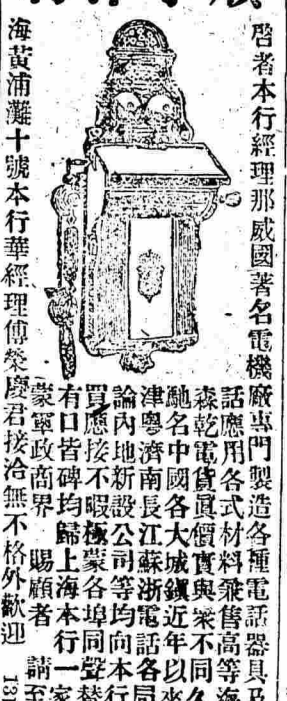 啓者本行經理那威國著名電機廠專門製造各種電話器具及
話應用各式材料兼售高等海
森乾電貨眞價實與衆不同久
馳名中國各大城鎭近年以來
津粵濟南長江蘇浙電話各局
論內地新設公司等均向本行
買應接不暇極蒙各埠同聲替
有口皆碑均歸上海本行一家
蒙軍政商界 賜顧者 請至
海黃浦灘十號本行華經理傅榮慶君接洽無不格外歡迎
131